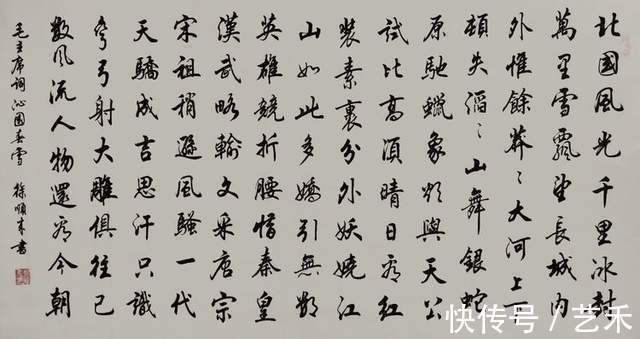 北國風光千里冰封
萬里雪飄望長城內
外惟餘莽〻大河上下
頓失滔〻山舞銀蛇
原馳蠟象欲與天公
試比高須晴日看紅
裝素裹分外妖嬈江
山如此多嬌引無數
英雄競折腰惜秦皇
漢武略輸文采唐宗
宋祖稍遜風騷一代
天驕成吉思汗只識
彎弓射大雕俱往已
數風流人物還看今朝
毛主席詞沁園春雪 徐順來書
快传号 / 艺禾